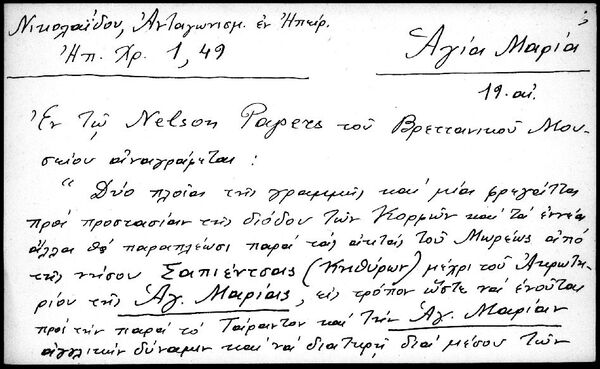 Νικολαΐδου, Ἀνταγωνισμ. ἐν Ἠπείρ.
Ἠπ. Χρ. 1, 49
Ἁγία Μαρία
19. αἰ.
Ἐν τῷ Nelson Papers τοῦ Βρεττανικοῦ Μου-
σείου ἀναγράφεται :
"Δύο πλοῖα τῆς γραμμῆς καὶ μία φρεγάττα
πρὸς προστασίαν τῆς διόδου τῶν Κορφῶν καὶ τὰ ἐννέα
ἄλλα θὰ παραπλέωσι παρὰ τὰς ἀκτὰς τοῦ Μωρέως ἀπὸ
τῆς νήσου Σαπιέντσας (Κυθύρων) μέχρι τοῦ Ἀκρωτη-
ρίου τῆς Ἁγ. Μαρίας, εἰς τρόπον ὥστε νὰ ἑνοῦται
πρὸς τὴν παρὰ τὸ Τάραντον καὶ τὴν Ἁγ. Μαρίαν
ἀγγλικὴν δύναμιν καὶ νὰ διατηρῇ διὰ μέσου τῶν